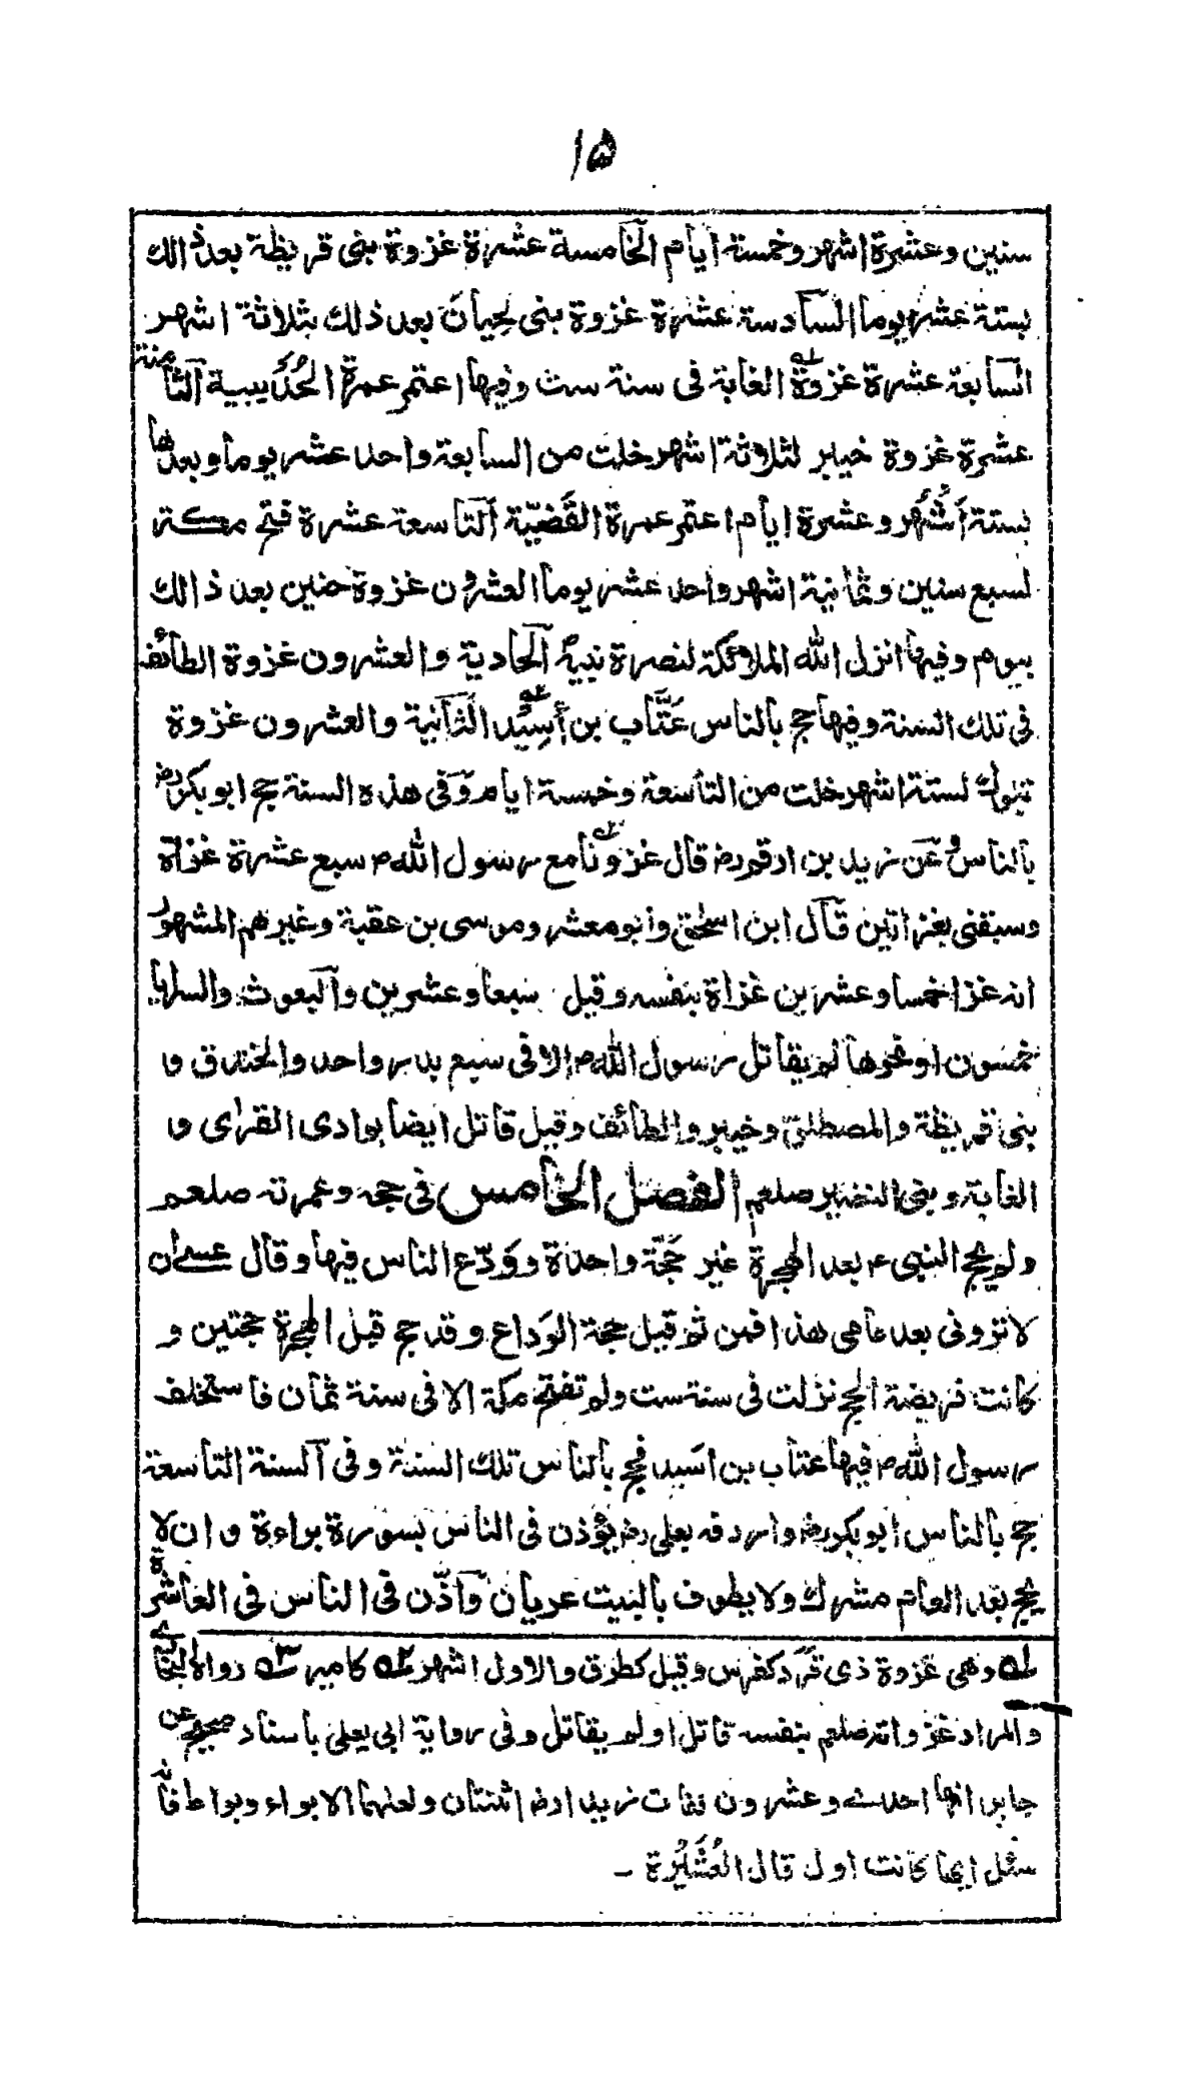 ۱۵
سنين وعشرة اشهر وخمسة ايام الخامسة عشرة غزوة بنى قريظة بعد ذالك
بستة عشر يوما السادسة عشرة غزوة بنى لحيان بعد ذلك بثلاثة اشهر
السابعة عشرة غزوة الغابة فى سنة ست وفيها اعتمر عمرة الحُدَيبية الثامنة
عشرة غزوة خيبر لثلاثة اشهر خلت من السابعة واحد عشر يوما وبعدها
بستة أَشْهُر وعشرة ايام اعتمر عمرة القَضيّة التاسعة عشرة فتح مكة
لسبع سنين وثمانية اشهر واحد عشر يوما العشرون غزوة حنين بعد ذالك
بيوم وفيها انزل الله الملائكة لنصرة نبيهٖ الحادية والعشرون غزوة الطائف
فى تلك السنة وفيها حج بالناس عَتَّاب بن أَسِيْد الثانية والعشرون غزوة
تبوك لستة اشهر خلت من التاسعة وخمسة ايام وفى هذه السنة حج ابو بكر رض
بالناس وعن زيد بن ارقم رض قال غزونا مع رسول الله م سبع عشرة غزاة
وسبقنى بغزاتين قال ابن اسحٰق وابو معشر وموسى بن عقبة وغيرهم المشهور
انه غزا خمسا وعشرين غزاة بنفسه وقيل سبعا وعشرين والبعوث والسرايا
خمسون او نحوها لم يقاتل رسول الله م الا فى سبع بدر واحد والخندق و
بنى قريظة والمصطلق وخيبر والطائف وقيل قاتل ايضا بوادى القرٰى و
الغابة وبنى النضير صلعم الفصل الخامس فى حجه وعمرته صلعم
ولم يحج النبى ء بعد الهجرة غير حَجّة واحدة ووَدّع الناس فيها وقال عسى ان
لا تزونى بعد عامى هذا فمن ثم قيل حجة الوَداع وقد حج قبل الهجرة حجتين و
كانت فريضة الحج نزلت فى سنة ست ولم تفتح مكة الا فى سنة ثمان فاستخلف
رسول الله م فيها عتاب بن اسَيد فحج بالناس تلك السنة وفى السنة التاسعة
حج بالناس ابو بكر رض واردفه بعلى رض يؤذن فى الناس بسورة براءة و ان لا
يحج بعد العام مشرك ولا يطوف بالبيت عريان وآذّن فى الناس فى العاشرة
لـه وهى غزوة ذى قَرَد كفرس وقيل كطرق والاول اشهر ۲ـه كامير ۳ـه رواه البخارى
والمراد غزواته صلعم بنفسه قاتل او لم يقاتل وفى رواية ابى يعلى باسناد صحيح عن
جابر انها احدى وعشرون ففات زيد ارض اثنتان ولعلهما الابواء وبواط فانه
سئل ايها كانت اول قال العُشَيْرة -